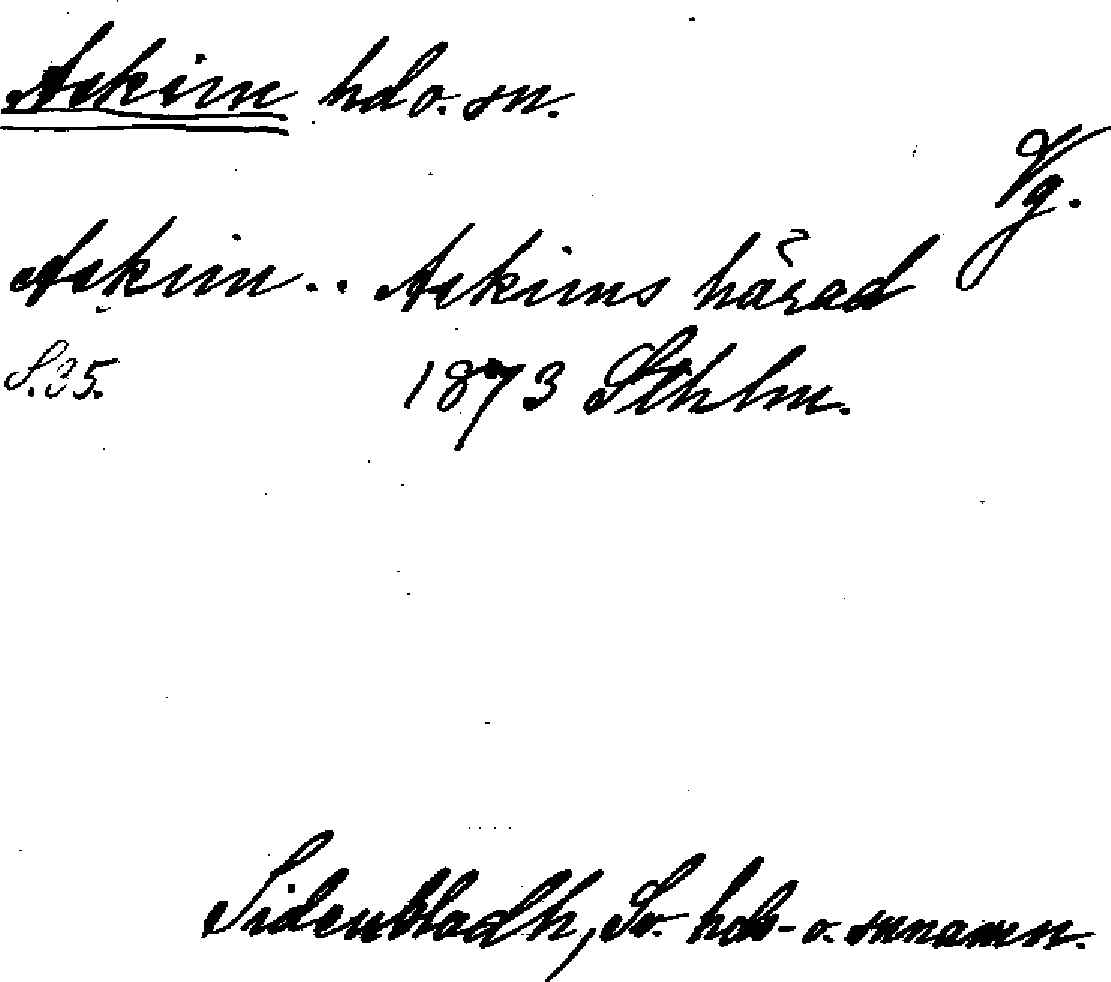 Askim hd o. sn.
Vg.
Askim.. Askims härad
S.35. 1873 Sthlm.
Sidenbladh, Sv. hds- o. snnamn.